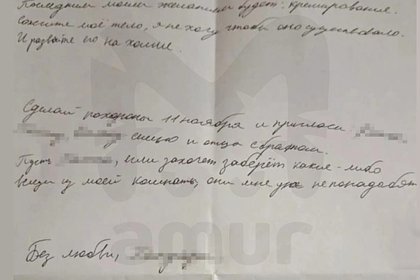 Последним моим желанием будет: кремирование.
Сожгите моё тело, я не хочу чтобы оно существовало.
И развейте его на холме.
Сделай похороны 11 ноября и пригласи
и отца с братом.
Пусть или захочет заберёт какие-либо
вещи из моей комнаты, они мне уже непонадобят
Без любви,
amur